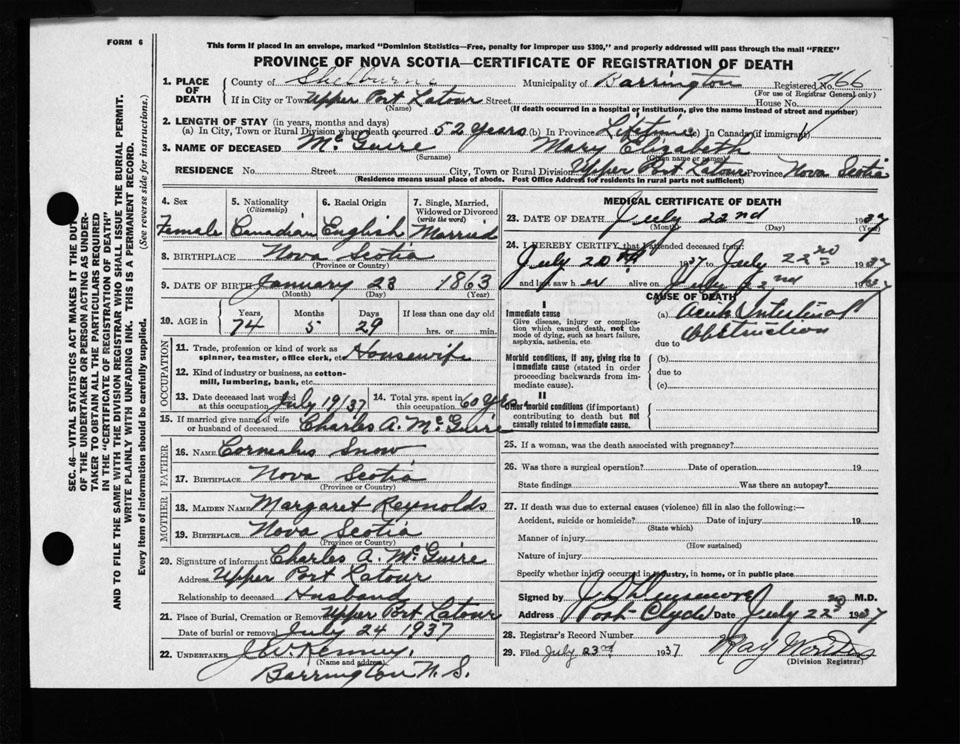 FORM 6
This form if placed in an envelope, marked "Dominion Statistics—Free, penalty for improper use $300," and properly addressed will pass through the mail "FREE"
PROVINCE OF NOVA SCOTIA—CERTIFICATE OF REGISTRATION OF DEATH
1. PLACE OF DEATH County of Shelburne Municipality of Barrington Registered No. 766
(For use of Registrar General only)
If in City or Town Upper Port Latour Street House No.
(Name) (If death occurred in a hospital or institution, give the name instead of street and number)
2. LENGTH OF STAY (in years, months and days)
(a) In City, Town or Rural Division where death occurred 52 years (b) In Province Lifetime (c) In Canada (if immigrant)
3. NAME OF DECEASED McGuire Mary Elizabeth
(Surname) (Given name or names)
RESIDENCE No. Street City, Town or Rural Division Upper Port Latour Province Nova Scotia
(Residence means usual place of abode. Post Office Address for residents in rural parts not sufficient)
4. Sex 5. Nationality (Citizenship) 6. Racial Origin 7. Single, Married, Widowed or Divorced (write the word)
Female Canadian English Married
8. BIRTHPLACE Nova Scotia
(Province or Country)
9. DATE OF BIRTH January 23 1863
(Month) (Day) (Year)
10. AGE in Years Months Days If less than one day old
74 5 29 hrs. or min.
OCCUPATION
11. Trade, profession or kind of work as spinner, teamster, office clerk, etc. Housewife
12. Kind of industry or business, as cotton-mill, lumbering, bank, etc.
13. Date deceased last worked at this occupation July 19/37 14. Total yrs. spent in this occupation 60 yrs.
15. If married give name of wife or husband of deceased Charles A. McGuire
FATHER
16. NAME Cornealus Snow
17. BIRTHPLACE Nova Scotia
(Province or Country)
MOTHER
18. MAIDEN NAME Margaret Reynolds
19. BIRTHPLACE Nova Scotia
(Province or Country)
20. Signature of informant Charles A. McGuire
Address Upper Port Latour
Relationship to deceased Husband
21. Place of Burial, Cremation or Removal Upper Port Latour
Date of burial or removal July 24 1937
22. UNDERTAKER J W Kenney,
(Name and address)
Barrington N. S.
MEDICAL CERTIFICATE OF DEATH
23. DATE OF DEATH July 22nd 1937
(Month) (Day) (Year)
24. I HEREBY CERTIFY, that I attended deceased from:
July 20th 1937 to July 22nd 1937
and last saw her alive on July 22nd 1937
CAUSE OF DEATH
I
Immediate cause
Give disease, injury or complication which caused death, not the mode of dying, such as heart failure, asphyxia, asthenia, etc.
(a) Acute Intestinal
Obstruction
due to
Morbid conditions, if any, giving rise to immediate cause (stated in order proceeding backwards from immediate cause).
(b)
due to
(c)
II
Other morbid conditions (if important) contributing to death but not causally related to immediate cause.
25. If a woman, was the death associated with pregnancy?
26. Was there a surgical operation? Date of operation 19
State findings Was there an autopsy?
27. If death was due to external causes (violence) fill in also the following:—
Accident, suicide or homicide? Date of injury 19
(State which)
Manner of injury
(How sustained)
Nature of injury
Specify whether injury occurred in industry, in home, or in public place
Signed by M.D.
Address Port Clyde Date July 22nd 1937
28. Registrar's Record Number
29. Filed July 23rd 1937 Ray
(Division Registrar)
SEC. 46—VITAL STATISTICS ACT MAKES IT THE DUTY
OF THE UNDERTAKER OR PERSON ACTING AS UNDERTAKER
TO OBTAIN ALL THE PARTICULARS REQUIRED
IN THE "CERTIFICATE OF REGISTRATION OF DEATH"
AND TO FILE THE SAME WITH THE DIVISION REGISTRAR WHO SHALL ISSUE THE BURIAL PERMIT.
WRITE PLAINLY WITH UNFADING INK. THIS IS A PERMANENT RECORD.
Every item of information should be carefully supplied. (See reverse side for instructions.)